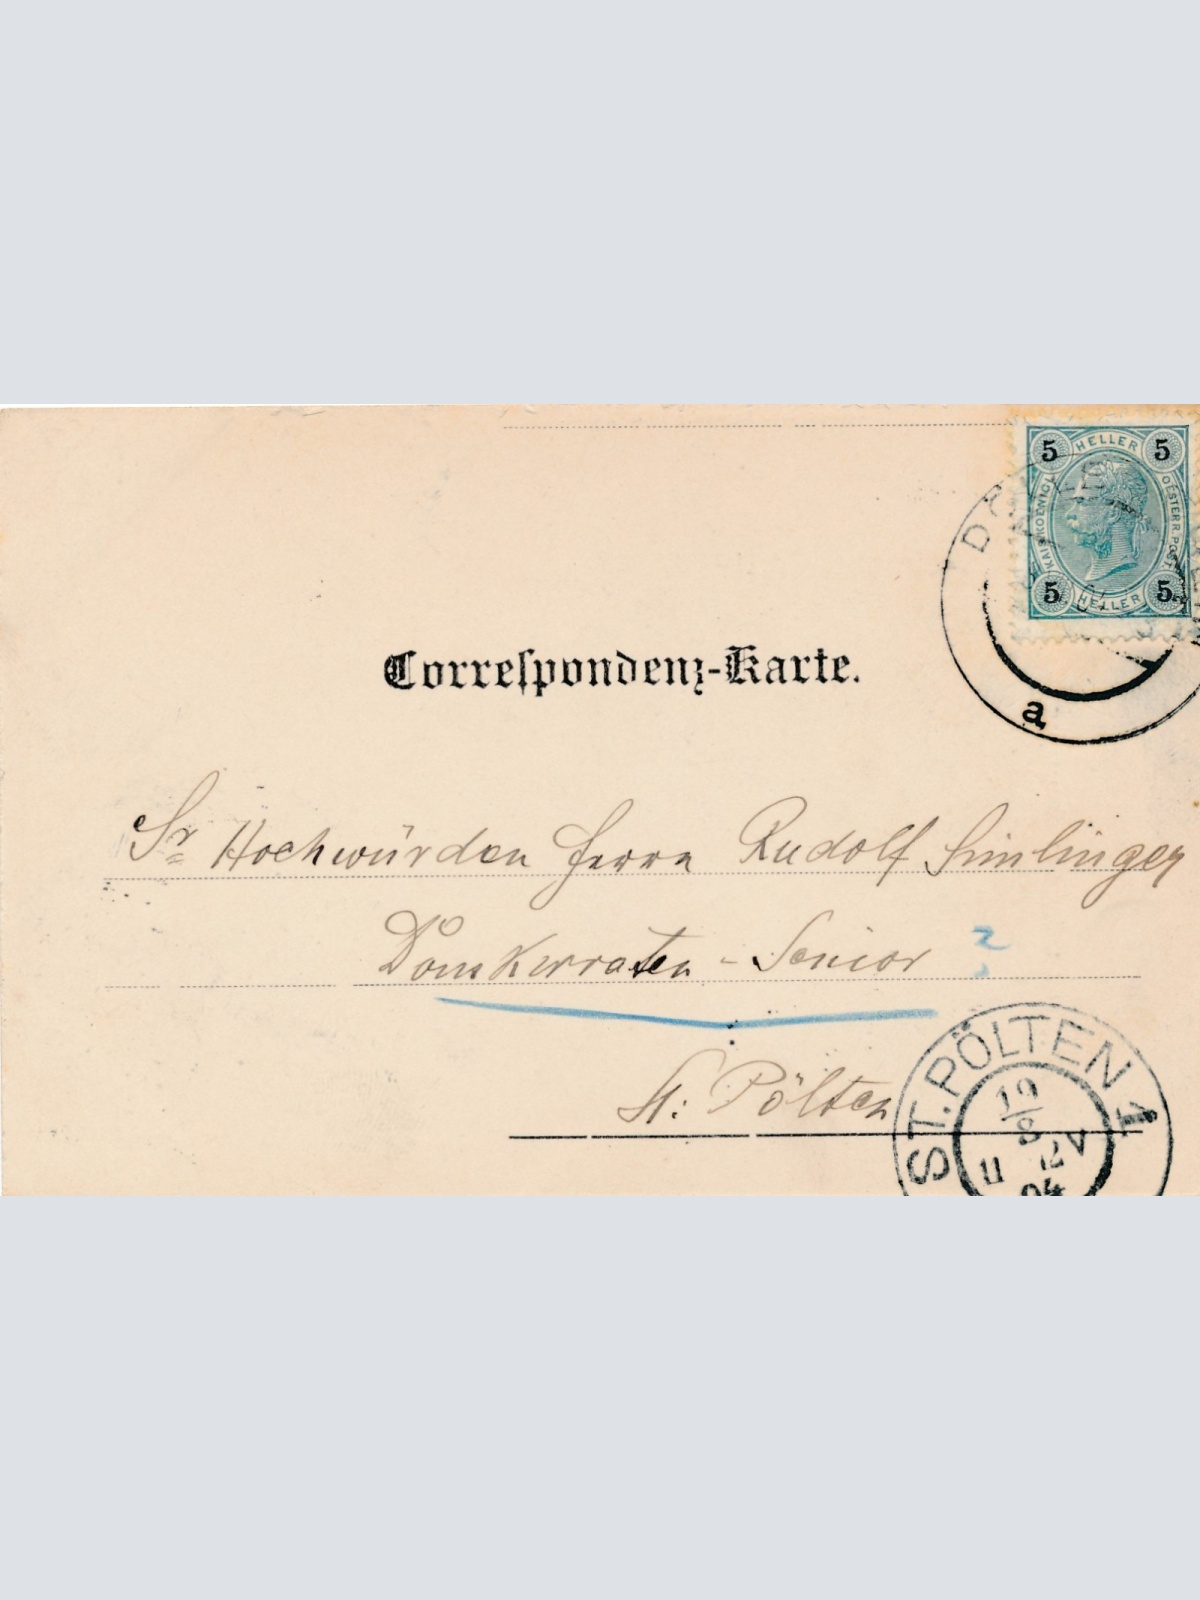 5 HELLER 5
KAIS. KOENIGL. OESTERR. POST.
5 HELLER 5
a
Correſpondenz-Karte.
Sr Hochwürden Herrn Rudolf Simlinger
Domkuraten - Senior ?
St. Pölten
ST. PÖLTEN 1
19/8
11 12 V
04